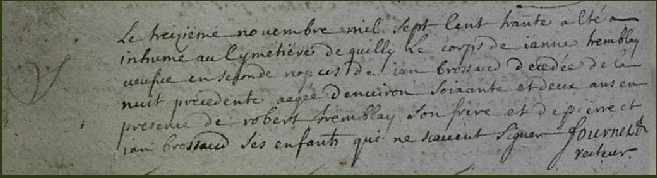 Le treizième novembre mil sept cent trante a été
inhumé au cymetière de quilly le corps de ianne tremblay
veufue en seconde nopces de ian brossard décédée de la
nuit précédente aagée d'environ soixante et deux ans en
présence de robert tremblay son frère et de pierre et
ian brossard ses enfants qui ne scavent signer
recteur